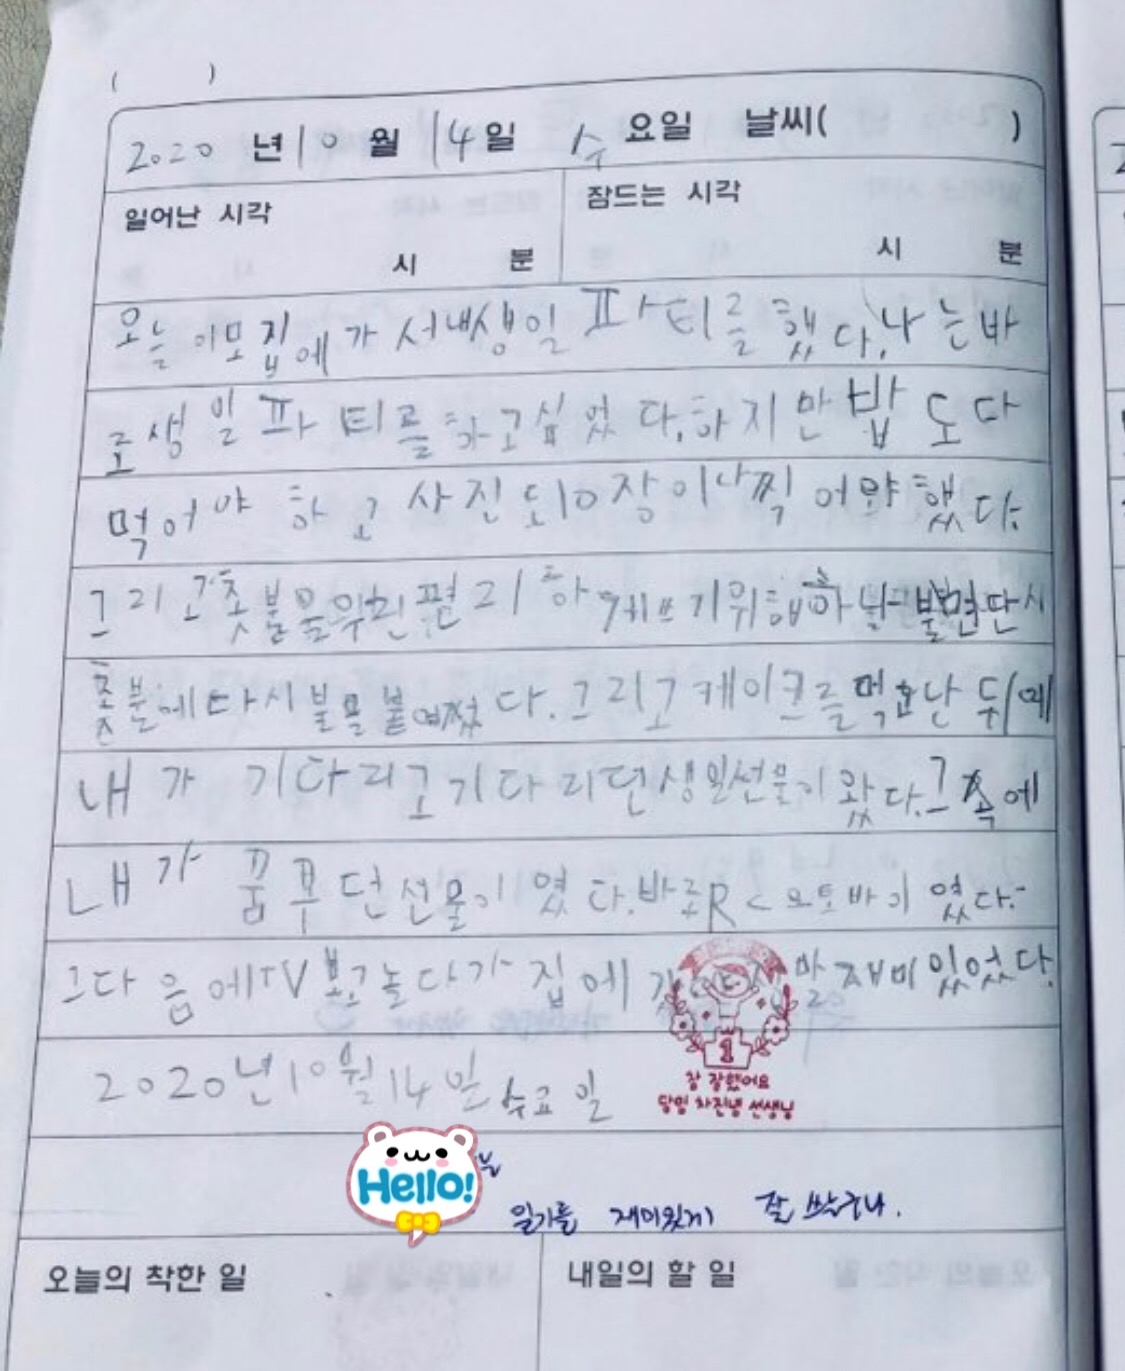 ( )
2020 년 10 월 14 일 수 요일 날씨( )
일어난 시각 잠드는 시각
시 분 시 분
오늘 이모 집에 가서 내 생일 파티를 했다. 나는 바
로 생일 파티를 하고 싶었다. 하지만 밥도 다
먹어야 하고 사진도 10장이나 찍어야 했다.
그리고 촛불을 하 기위해
촛불에 다시 불을 다. 그리고 케이크를 먹고 난 뒤에
내가 기다리고 기다리던 생일선물이 왔다. 그 속에
내가 꿈꾸던 선물이 였다. 바로 R 오토바이 였다.
그다음에 TV 보고 놀다가 집에 재미있었다.
2020년 10월 14일 수요일
참 잘했어요
선생님
Hello!
일기를 재미있게 잘 썼구나.
오늘의 착한 일 내일의 할 일